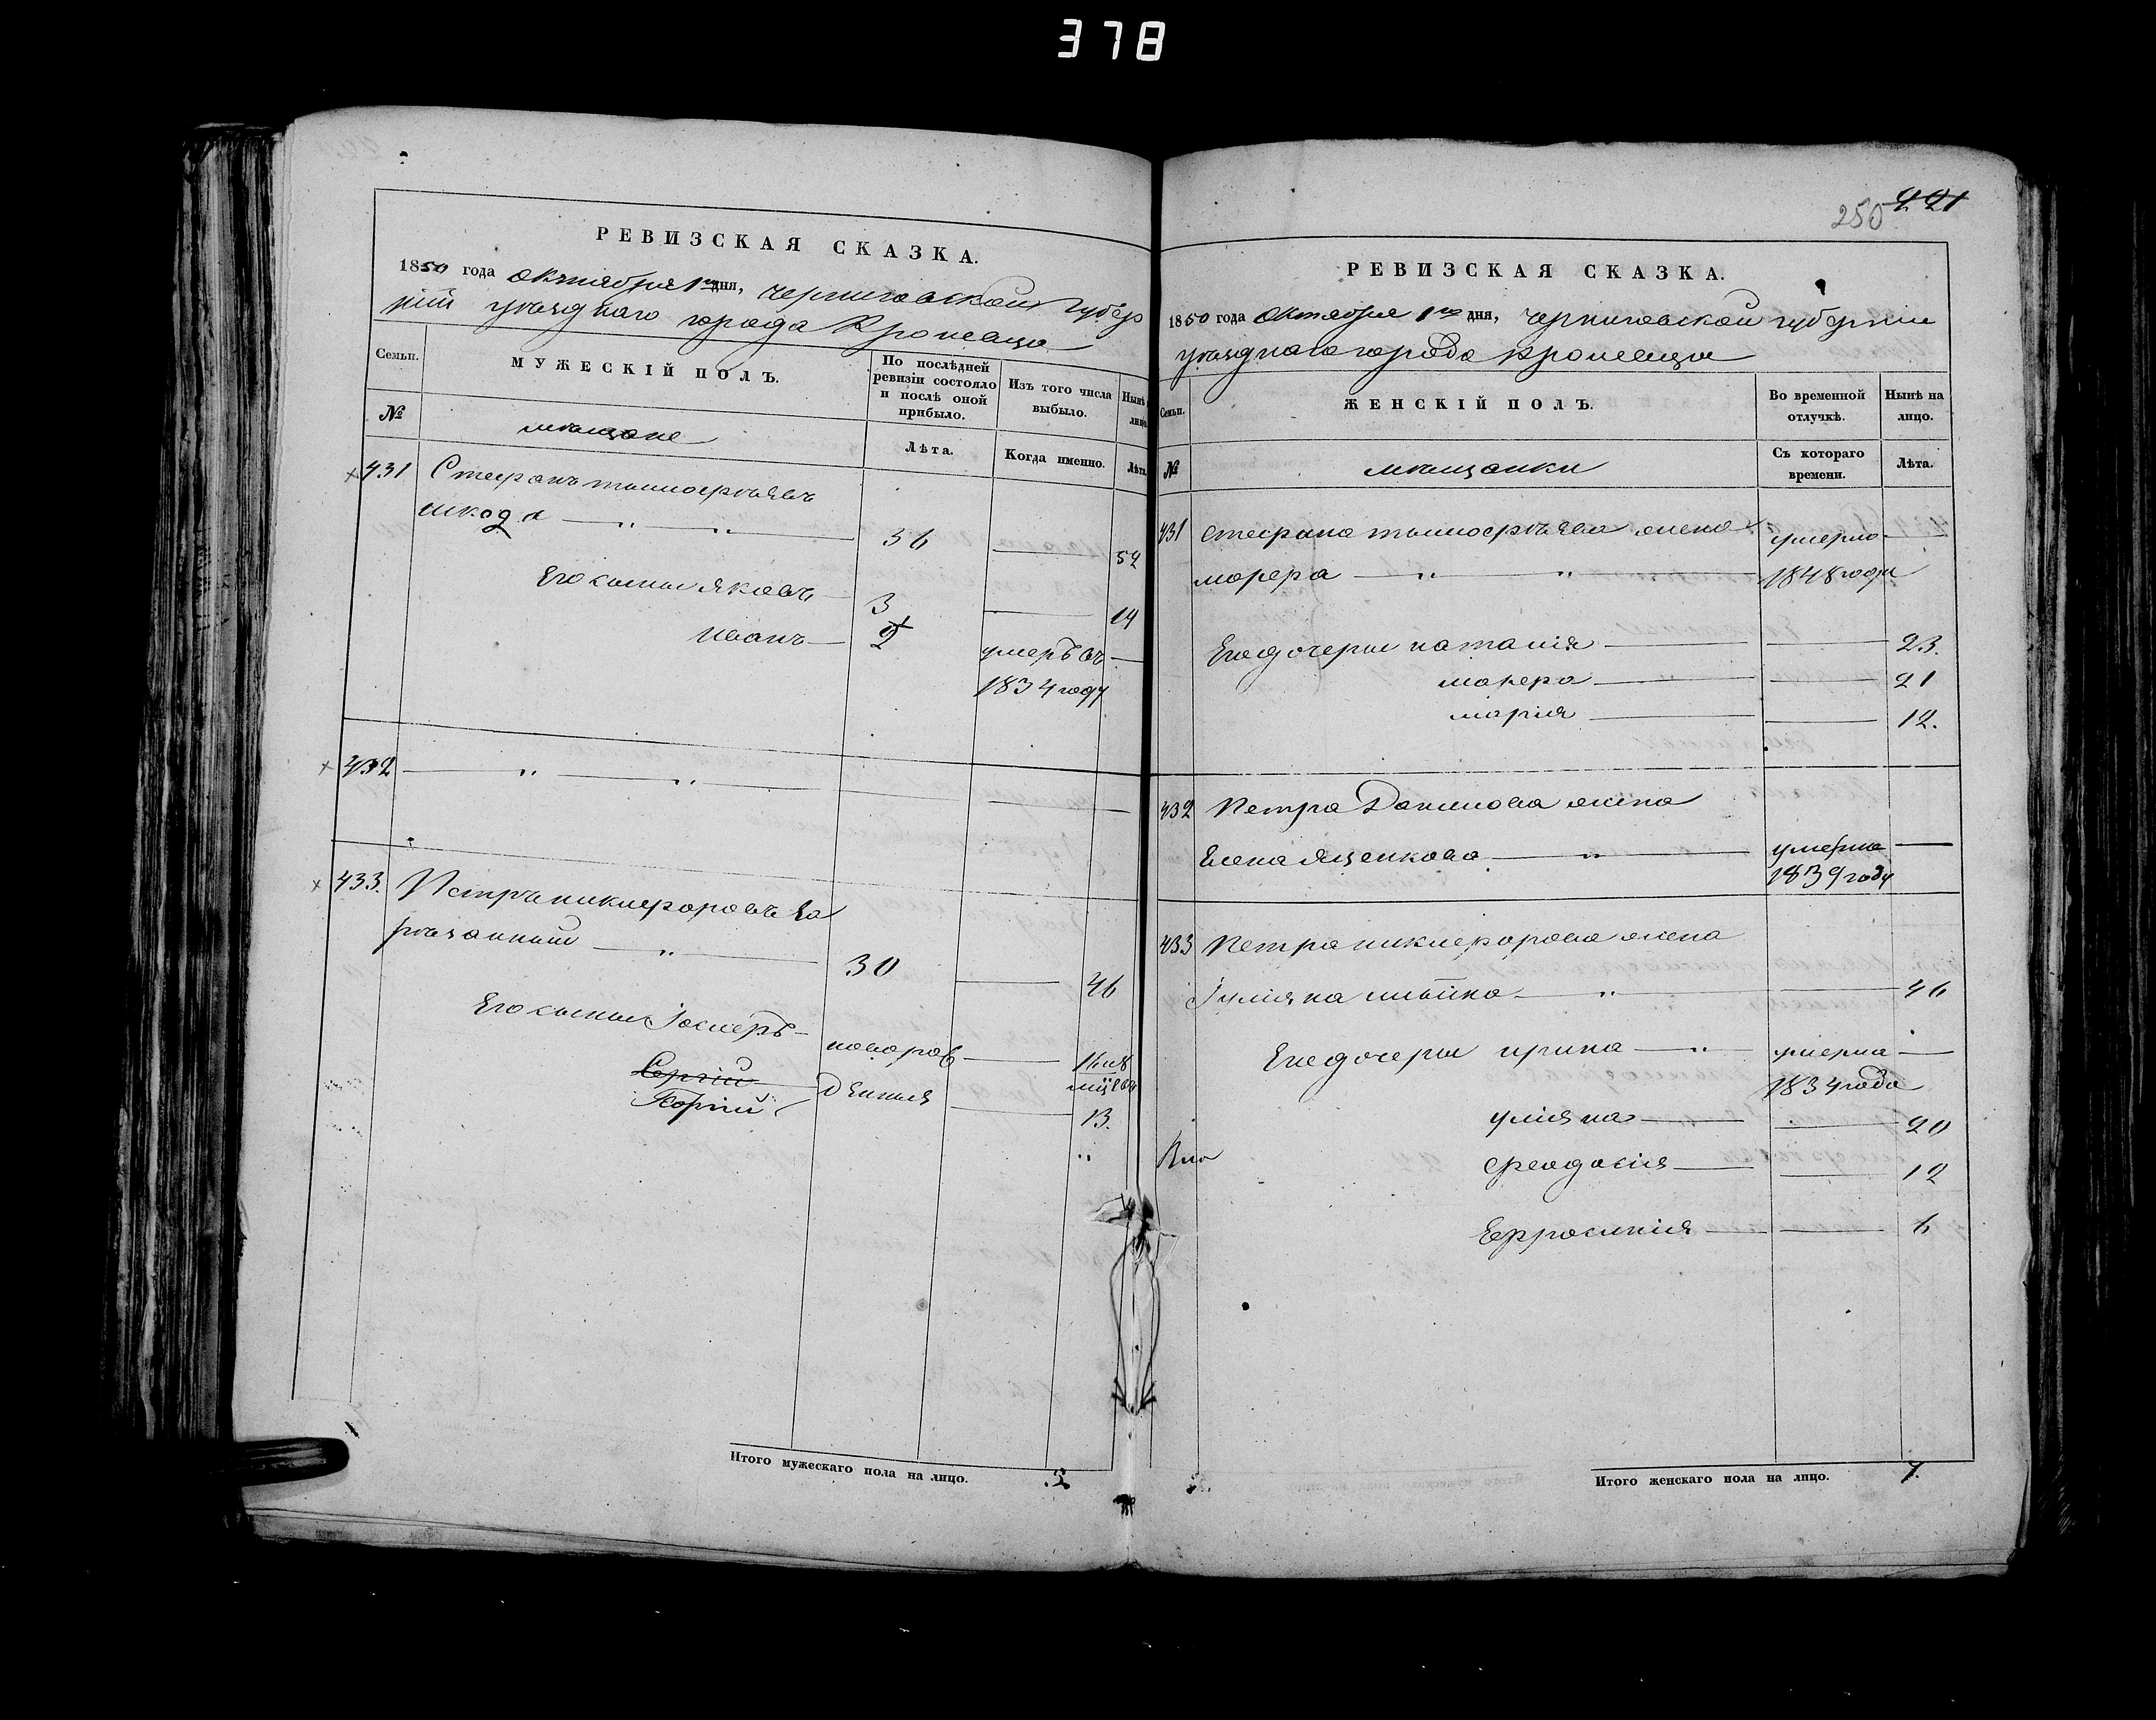 378
РЕВИЗСКАЯ СКАЗКА.
1850 года октября 1го дня, черниговской губер
ніи уѣзднаго города Кролевца
Семьи. МУЖЕСКІЙ ПОЛЪ. По послѣдней ревизіи состояло и послѣ оной прибыло. Изъ того числа выбыло. Нынѣ
№ мѣщане Лѣта. Когда именно. Лѣта
431 Стефанъ тимофѣевъ
шкода — „ — „ — 36 — 52
Его сыны Яковъ — 3 — 19
Иванъ — 2 умеръ въ —
1834 году
432 — „ — „ —
433. Петръ никифоровъ
— „ — 30 — 46
Его сыны Іосифъ — новорож — 16
Сергій
Георгій Денныя — 13.
„
Итого мужескаго пола на лицо. 5
250 221
РЕВИЗСКАЯ СКАЗКА.
1850 года Октября 1го дня, черниговской губерніи
уѣзднаго города кролевца
Семьи. ЖЕНСКІЙ ПОЛЪ. Во временной отлучкѣ. Нынѣ на лицо.
№ мѣщанки Съ котораго времени. Лѣта.
431 стефана тимофѣева жена умерла —
марфа — „ — „ — 1848 года
Его дочери наталія — — 23.
марфа — — 21
марія — — 12.
432 Петра Данилова жена
Елена Яценкова — „ — умерла —
1839 году
433 Петра никифорова жена
— „ — — 46
Его дочери ирина — „ — умерла —
1834 года
уліяна — — 20
феодосія — — 12
Ефросинія — — 6
Итого женскаго пола на лицо. 7.